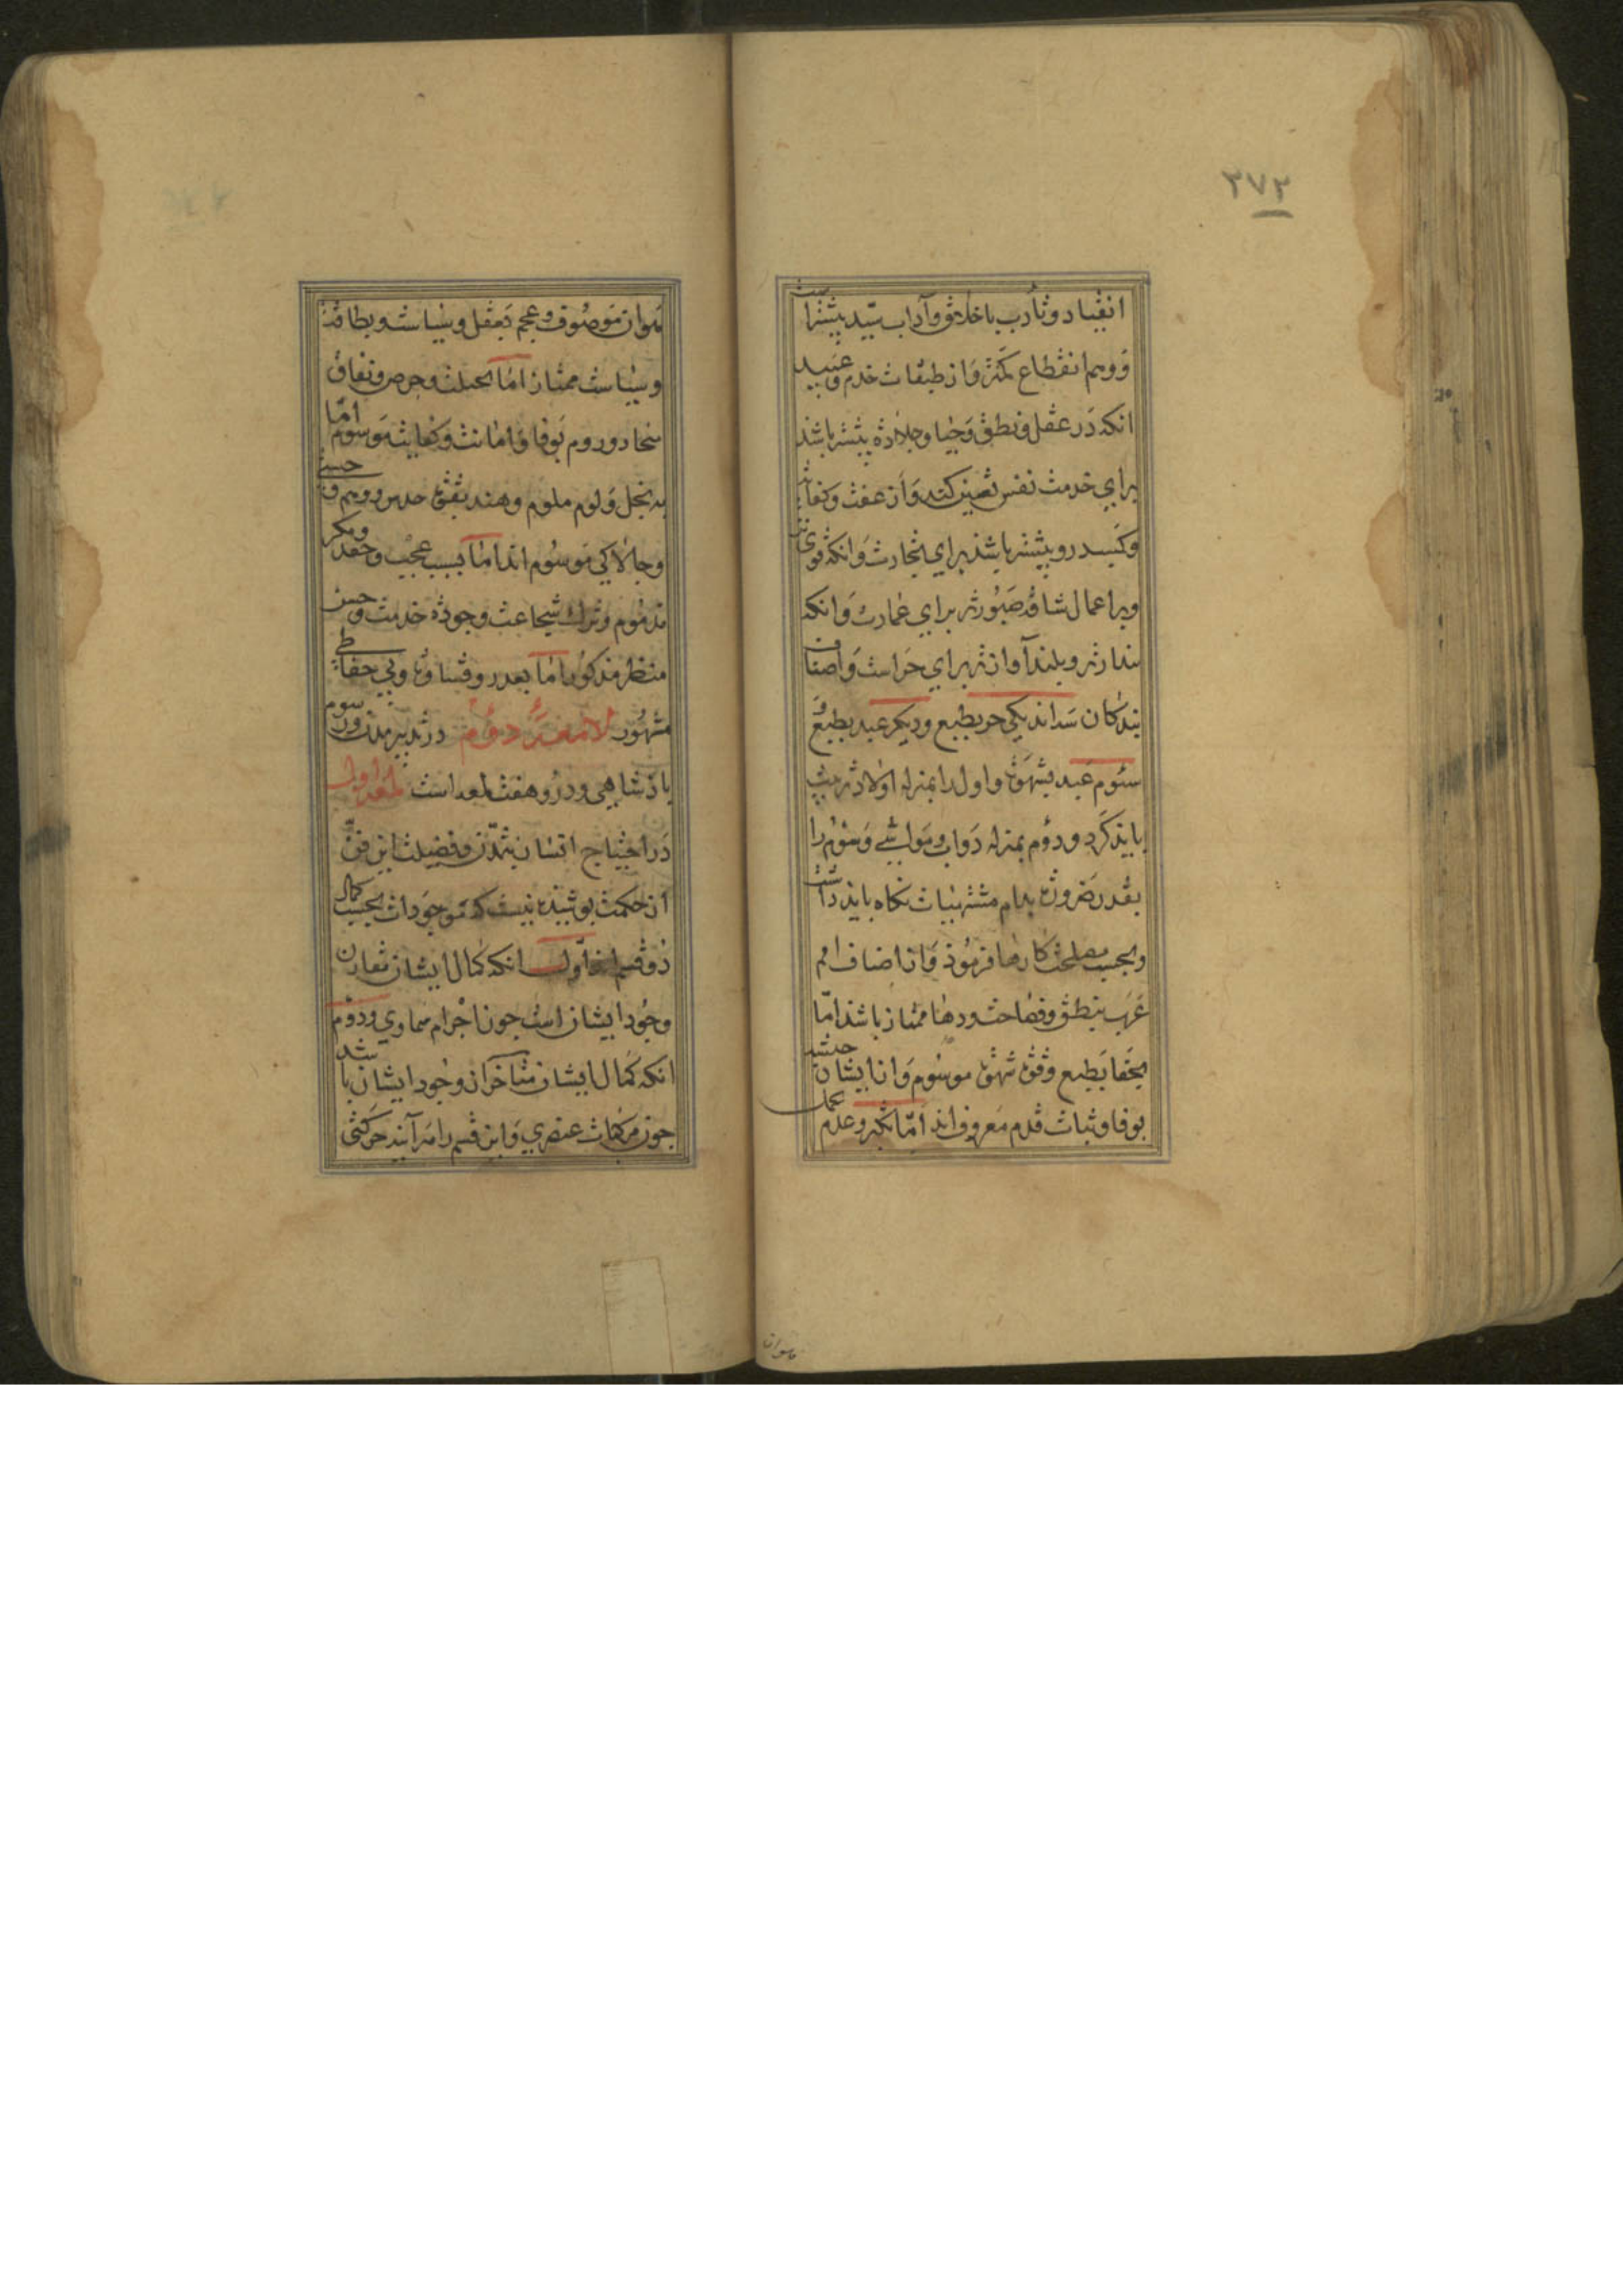 ۳۷۳
انقیاد وتأدب باخلاق وآداب سید بیشترست
ووهم انقطاع کمتر واز طبقات خدم وعبید
انکه در عقل ونطق وحیا وجلادة بیشتر باشد
برای خدمت نفس تعیین کند واز عفت وکفایت
وکسب درو بیشتر باشد برای تجارت وانکه قوی تن
وبر اعمال شاقه صبورتر برای عمارت وانکه
بندارتر وبلند آوازتر برای حراست واصناف
بندکان سه اند یکی حر بطبع ودیکر عبد بطبع و
سوم عبد بشهوة واول را بمنزله اولاد تربیت
باید کرد ودوم بمنزله دواب ومواشی وسوم را
بقدر ضرورت بدام مشتهیات نکاه باید داشت
وبحسب مصلحت کارها فرمود واز اصناف امم
عرب بنطق وفصاحت ودها ممتاز باشد اما
بجفا طبع وقوة شهوة موسوم وازایشان حبشه
بوفا وثبات قدم معروف اند اما تکبر وعدم تحمل
موصوف وعجم بعقل وسیاست ونظافت
وسیاست ممتاز اما بحیلت وحرص ونفاق
وروم بوفا وامانت وکفایت موسوم اما
ببخل ولوم ملوم وهند بقوة حدس ووهم و
وجالاکی موسوم اند اما بسبب عجب وحقد ومکر
مذموم وترک شجاعت وجودة خدمت وحسن
منظر مذکور اما بغدر وقساوة وبی حفاظی
مشهور لامعه دوم در تدبیر مدن ورسوم
پاذشاهی ودرو هفت لمعه است لمعه اول
در احتیاج انسان بتمدن وفضیلت این فن
از حکمت بوشیده نیست که موجودات بحسب کمال
دو قسم اند اول انکه کمال ایشان مقارن
وجود ایشان است جون اجرام سماوی ودوم
انکه کمال ایشان متأخر از وجود ایشان باشد
جون مرکبات عنصری واین قسم را هر آینه حرکتی